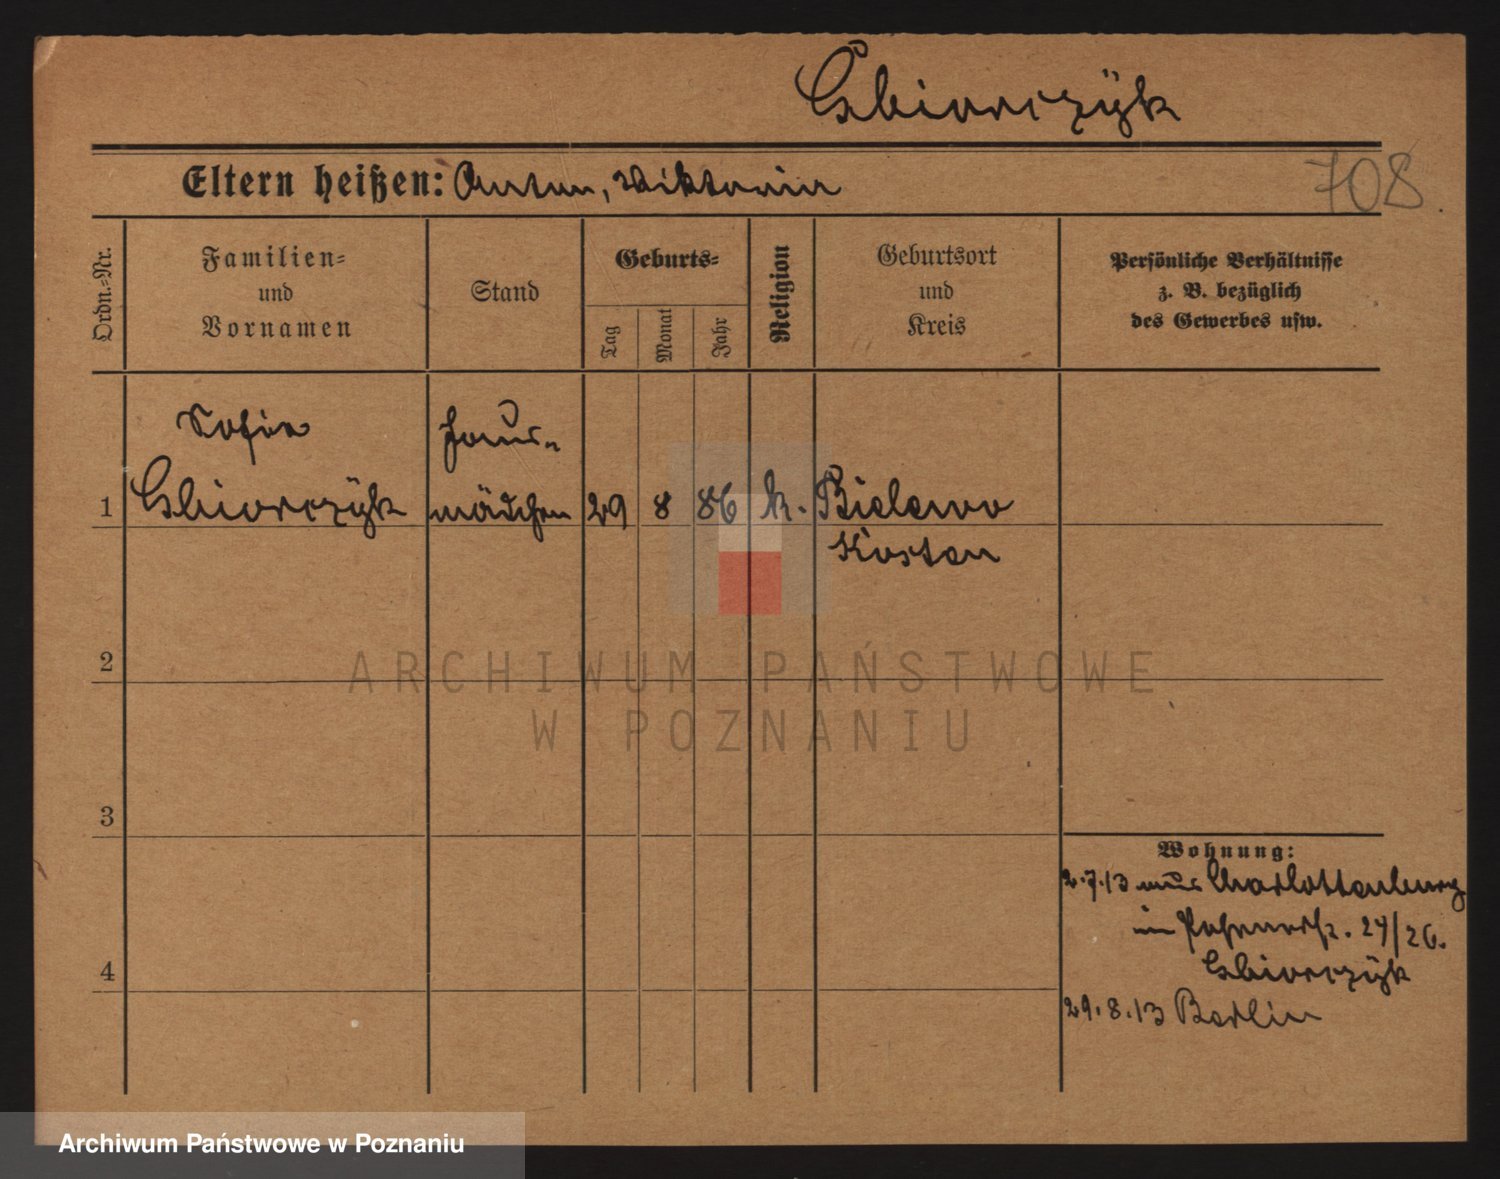 Gbiorczÿk
Eltern heißen: Anton, Viktoria
708
Ordn.-Nr.
Familien-
und
Vornamen
Stand
Geburts-
Tag
Monat
Jahr
Religion
Geburtsort
und
Kreis
Persönliche Verhältnisse
z. B. bezüglich
des Gewerbes usw.
Sofia
Haus-
1 Gbiorczÿk mädchen 29 8 86 k. Bielewo
Kosten
2
ARCHIWUM PAŃSTWOWE
W POZNANIU
3
Wohnung:
2.7.13 aus Charlottenburg
24/26.
Gbiorczÿk
4
29.8.13 Berlin
Archiwum Państwowe w Poznaniu